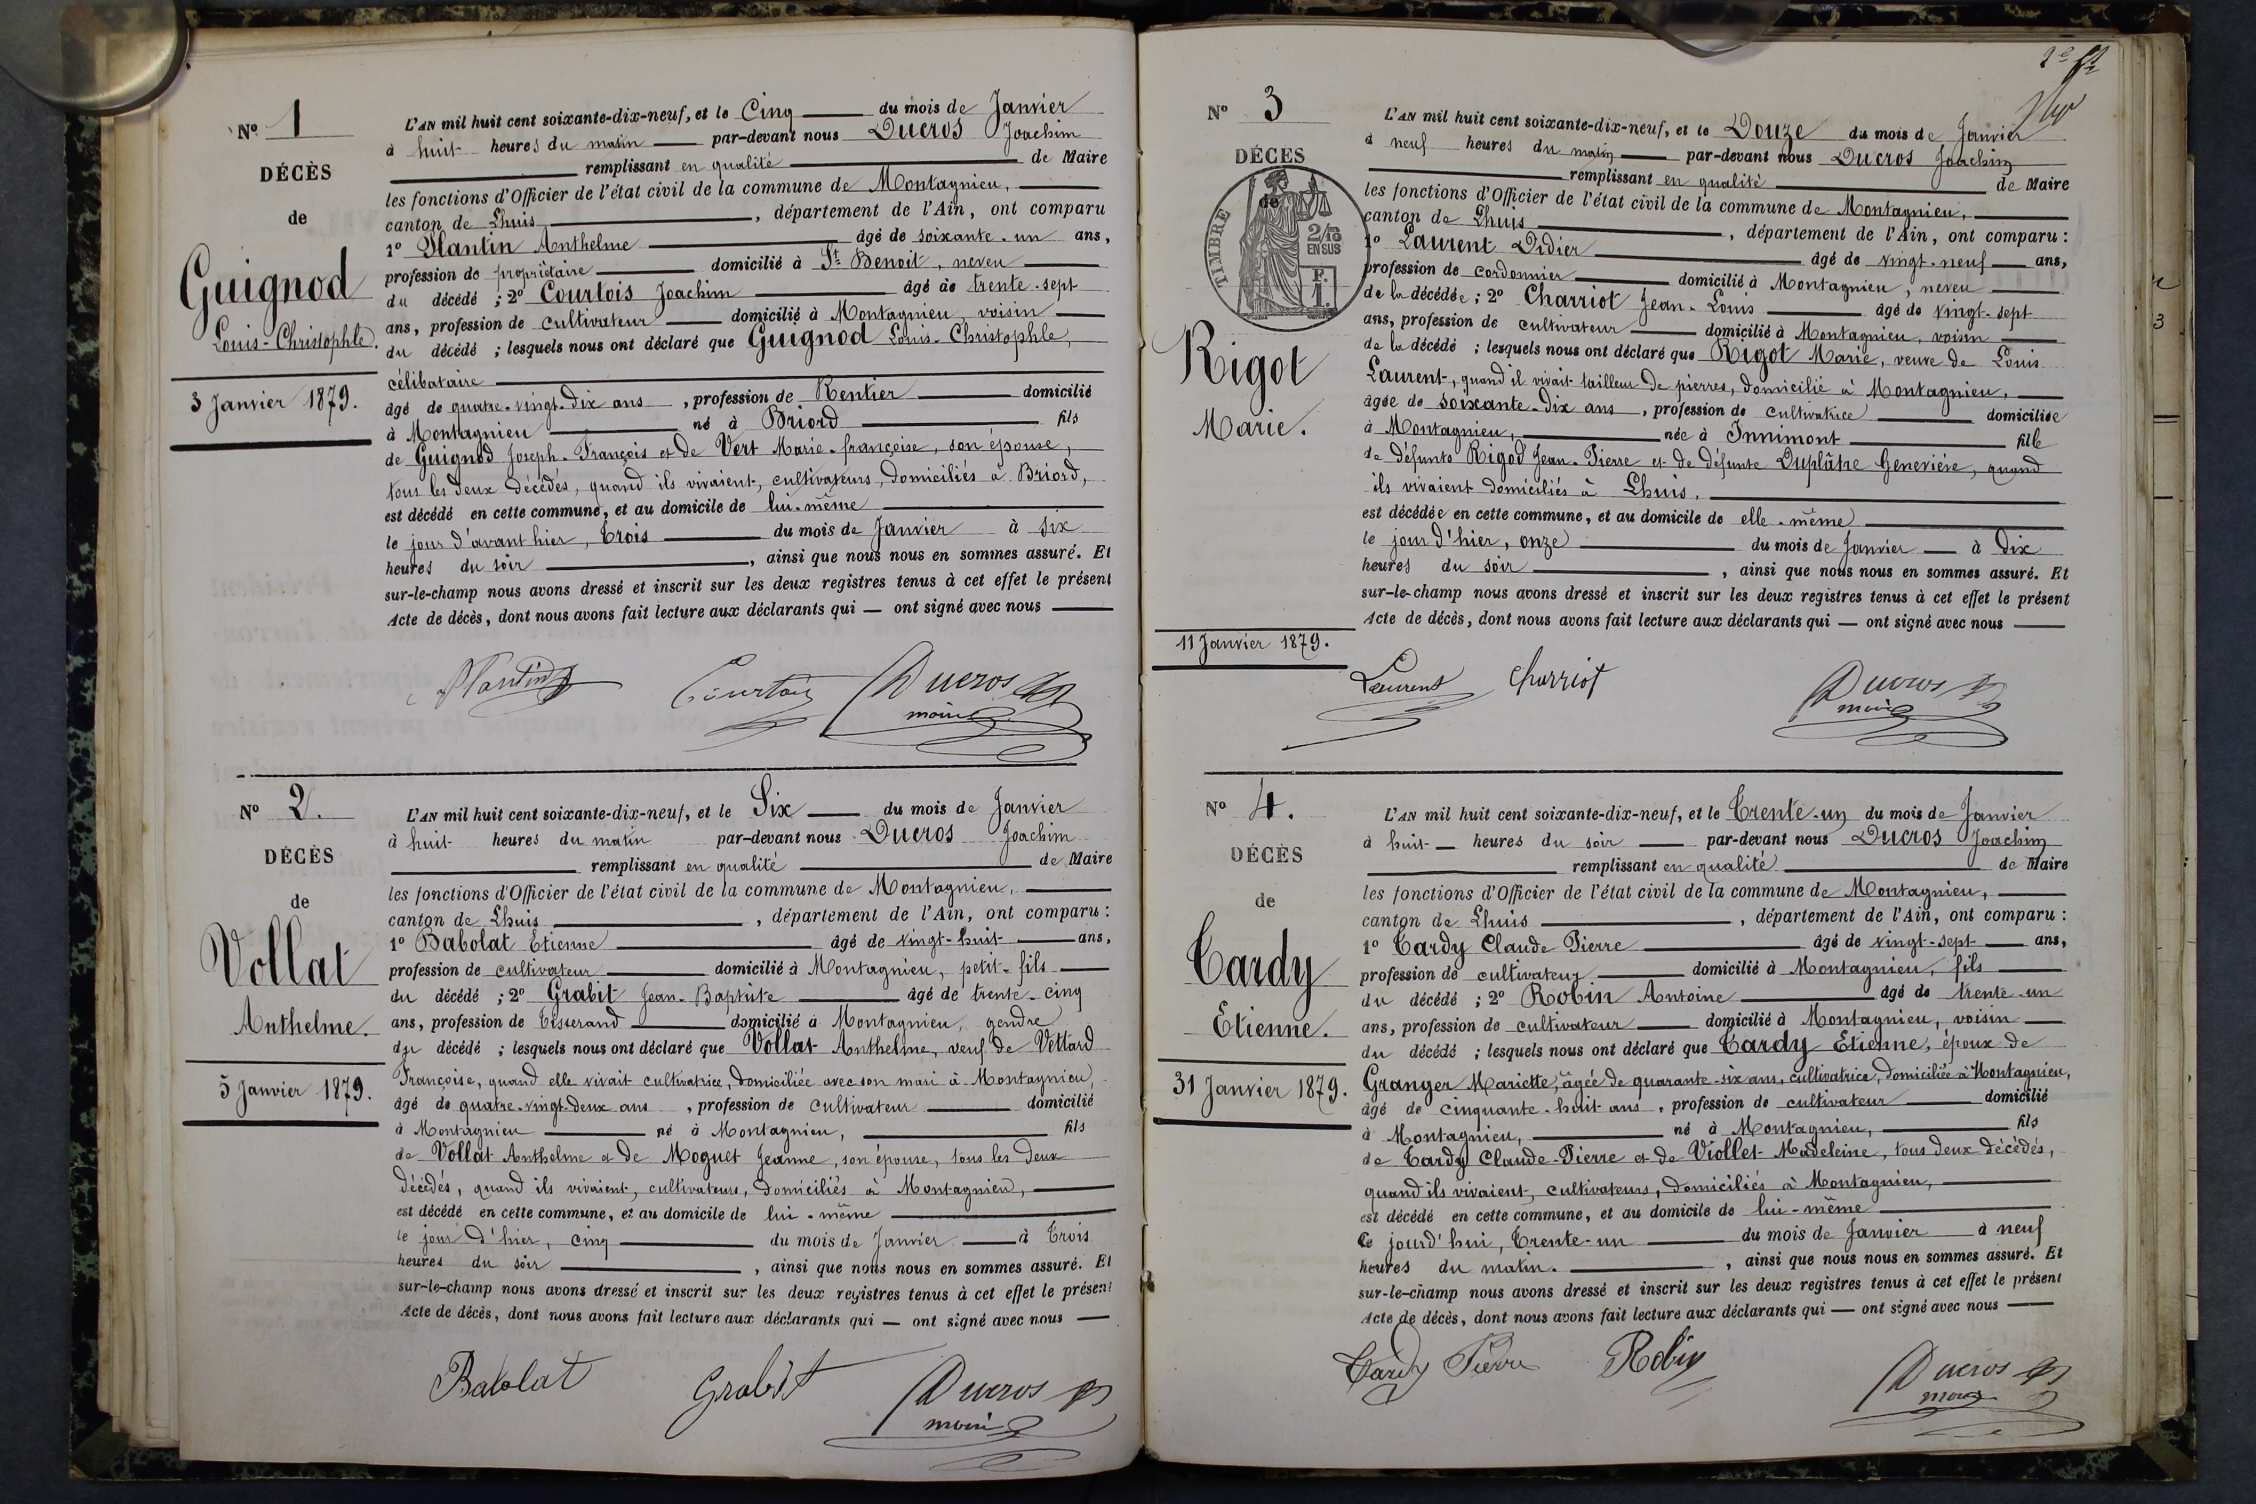 N° 1
DÉCÈS
de
Guignod
Louis-Christophle.
3 Janvier 1879.
L'AN mil huit cent soixante-dix-neuf, et le Cinq du mois de Janvier
à huit heures du matin par-devant nous Ducros Joachim
remplissant en qualité de Maire
les fonctions d'Officier de l'état civil de la commune de Montagnieu,
canton de Lhuis, département de l'Ain, ont comparu
1° Plantin Anthelme âgé de soixante-un ans,
profession de propriétaire domicilié à St. Benoit, neveu
du décédé ; 2° Courtois Joachim âgé de trente-sept
ans, profession de cultivateur domicilié à Montagnieu, voisin
du décédé ; lesquels nous ont déclaré que Guignod Louis-Christophle,
célibataire
âgé de quatre-vingt-dix ans, profession de Rentier domicilié
à Montagnieu né à Briord fils
de Guignod Joseph-François et de Vert Marie-françoise, son épouse,
tous les deux décédés, quand ils vivaient, cultivateurs, domiciliés à Briord,
est décédé en cette commune, et au domicile de lui-même
le jour d'avant hier, trois du mois de Janvier à six
heures du soir, ainsi que nous nous en sommes assuré. Et
sur-le-champ nous avons dressé et inscrit sur les deux registres tenus à cet effet le présent
Acte de décès, dont nous avons fait lecture aux déclarants qui — ont signé avec nous
Plantin Courtois Ducros
maire
N° 2.
DÉCÈS
de
Vollat
Anthelme.
5 Janvier 1879.
L'AN mil huit cent soixante-dix-neuf, et le Six du mois de Janvier
à huit heures du matin par-devant nous Ducros Joachim
remplissant en qualité de Maire
les fonctions d'Officier de l'état civil de la commune de Montagnieu,
canton de Lhuis, département de l'Ain, ont comparu :
1° Babolat Etienne âgé de vingt-huit ans,
profession de cultivateur domicilié à Montagnieu, petit-fils
du décédé ; 2° Grabit Jean-Baptiste âgé de trente-cinq
ans, profession de tisserand domicilié à Montagnieu, gendre
du décédé ; lesquels nous ont déclaré que Vollat Anthelme, veuf de Vettard
Françoise, quand elle vivait cultivatrice, domiciliée avec son mari à Montagnieu,
âgé de quatre-vingt-deux ans, profession de cultivateur domicilié
à Montagnieu né à Montagnieu, fils
de Vollat Anthelme et de Moguet Jeanne, son épouse, tous les deux
décédés, quand ils vivaient, cultivateurs, domiciliés à Montagnieu,
est décédé en cette commune, et au domicile de lui-même
le jour d'hier, cinq du mois de Janvier à trois
heures du soir, ainsi que nous nous en sommes assuré. Et
sur-le-champ nous avons dressé et inscrit sur les deux registres tenus à cet effet le présent
Acte de décès, dont nous avons fait lecture aux déclarants qui — ont signé avec nous
Babolat Grabit Ducros
maire
N° 3
DÉCÈS
de
TIMBRE
2/10
EN SUS
F.
1.
Rigot
Marie.
11 Janvier 1879.
L'AN mil huit cent soixante-dix-neuf, et le Douze du mois de Janvier
à neuf heures du matin par-devant nous Ducros Joachim
remplissant en qualité de Maire
les fonctions d'Officier de l'état civil de la commune de Montagnieu,
canton de Lhuis, département de l'Ain, ont comparu :
1° Laurent Didier âgé de vingt-neuf ans,
profession de cordonnier domicilié à Montagnieu, neveu
de la décédée ; 2° Charriot Jean-Louis âgé de vingt-sept
ans, profession de cultivateur domicilié à Montagnieu, voisin
de la décédé ; lesquels nous ont déclaré que Rigot Marie, veuve de Louis
Laurent, quand il vivait tailleur de pierres, domicilié à Montagnieu,
âgée de soixante-dix ans, profession de cultivatrice domiciliée
à Montagnieu, née à Innimont fille
de défunts Rigod Jean-Pierre et de défunte Duplâtre Geneviève, quand
ils vivaient domiciliés à Lhuis,
est décédée en cette commune, et au domicile de elle-même
le jour d'hier, onze du mois de Janvier à dix
heures du soir, ainsi que nous nous en sommes assuré. Et
sur-le-champ nous avons dressé et inscrit sur les deux registres tenus à cet effet le présent
Acte de décès, dont nous avons fait lecture aux déclarants qui — ont signé avec nous
Laurent Charriot Ducros
maire
N° 4.
DÉCÈS
de
Tardy
Etienne.
31 Janvier 1879.
L'AN mil huit cent soixante-dix-neuf, et le Trente-un du mois de Janvier
à huit heures du soir par-devant nous Ducros Joachim
remplissant en qualité de Maire
les fonctions d'Officier de l'état civil de la commune de Montagnieu,
canton de Lhuis, département de l'Ain, ont comparu :
1° Tardy Claude Pierre âgé de vingt-sept ans,
profession de cultivateur domicilié à Montagnieu, fils
du décédé ; 2° Robin Antoine âgé de trente-un
ans, profession de cultivateur domicilié à Montagnieu, voisin
du décédé ; lesquels nous ont déclaré que Tardy Etienne, époux de
Granger Mariette, âgée de quarante-six ans, cultivatrice, domiciliée à Montagnieu,
âgé de cinquante-huit ans, profession de cultivateur domicilié
à Montagnieu, né à Montagnieu, fils
de Tardy Claude-Pierre et de Viollet Madeleine, tous deux décédés,
quand ils vivaient, cultivateurs, domiciliés à Montagnieu,
est décédé en cette commune, et au domicile de lui-même
ce jourd'hui, trente-un du mois de Janvier à neuf
heures du matin, ainsi que nous nous en sommes assuré. Et
sur-le-champ nous avons dressé et inscrit sur les deux registres tenus à cet effet le présent
Acte de décès, dont nous avons fait lecture aux déclarants qui — ont signé avec nous
Tardy Pierre Robin Ducros
maire